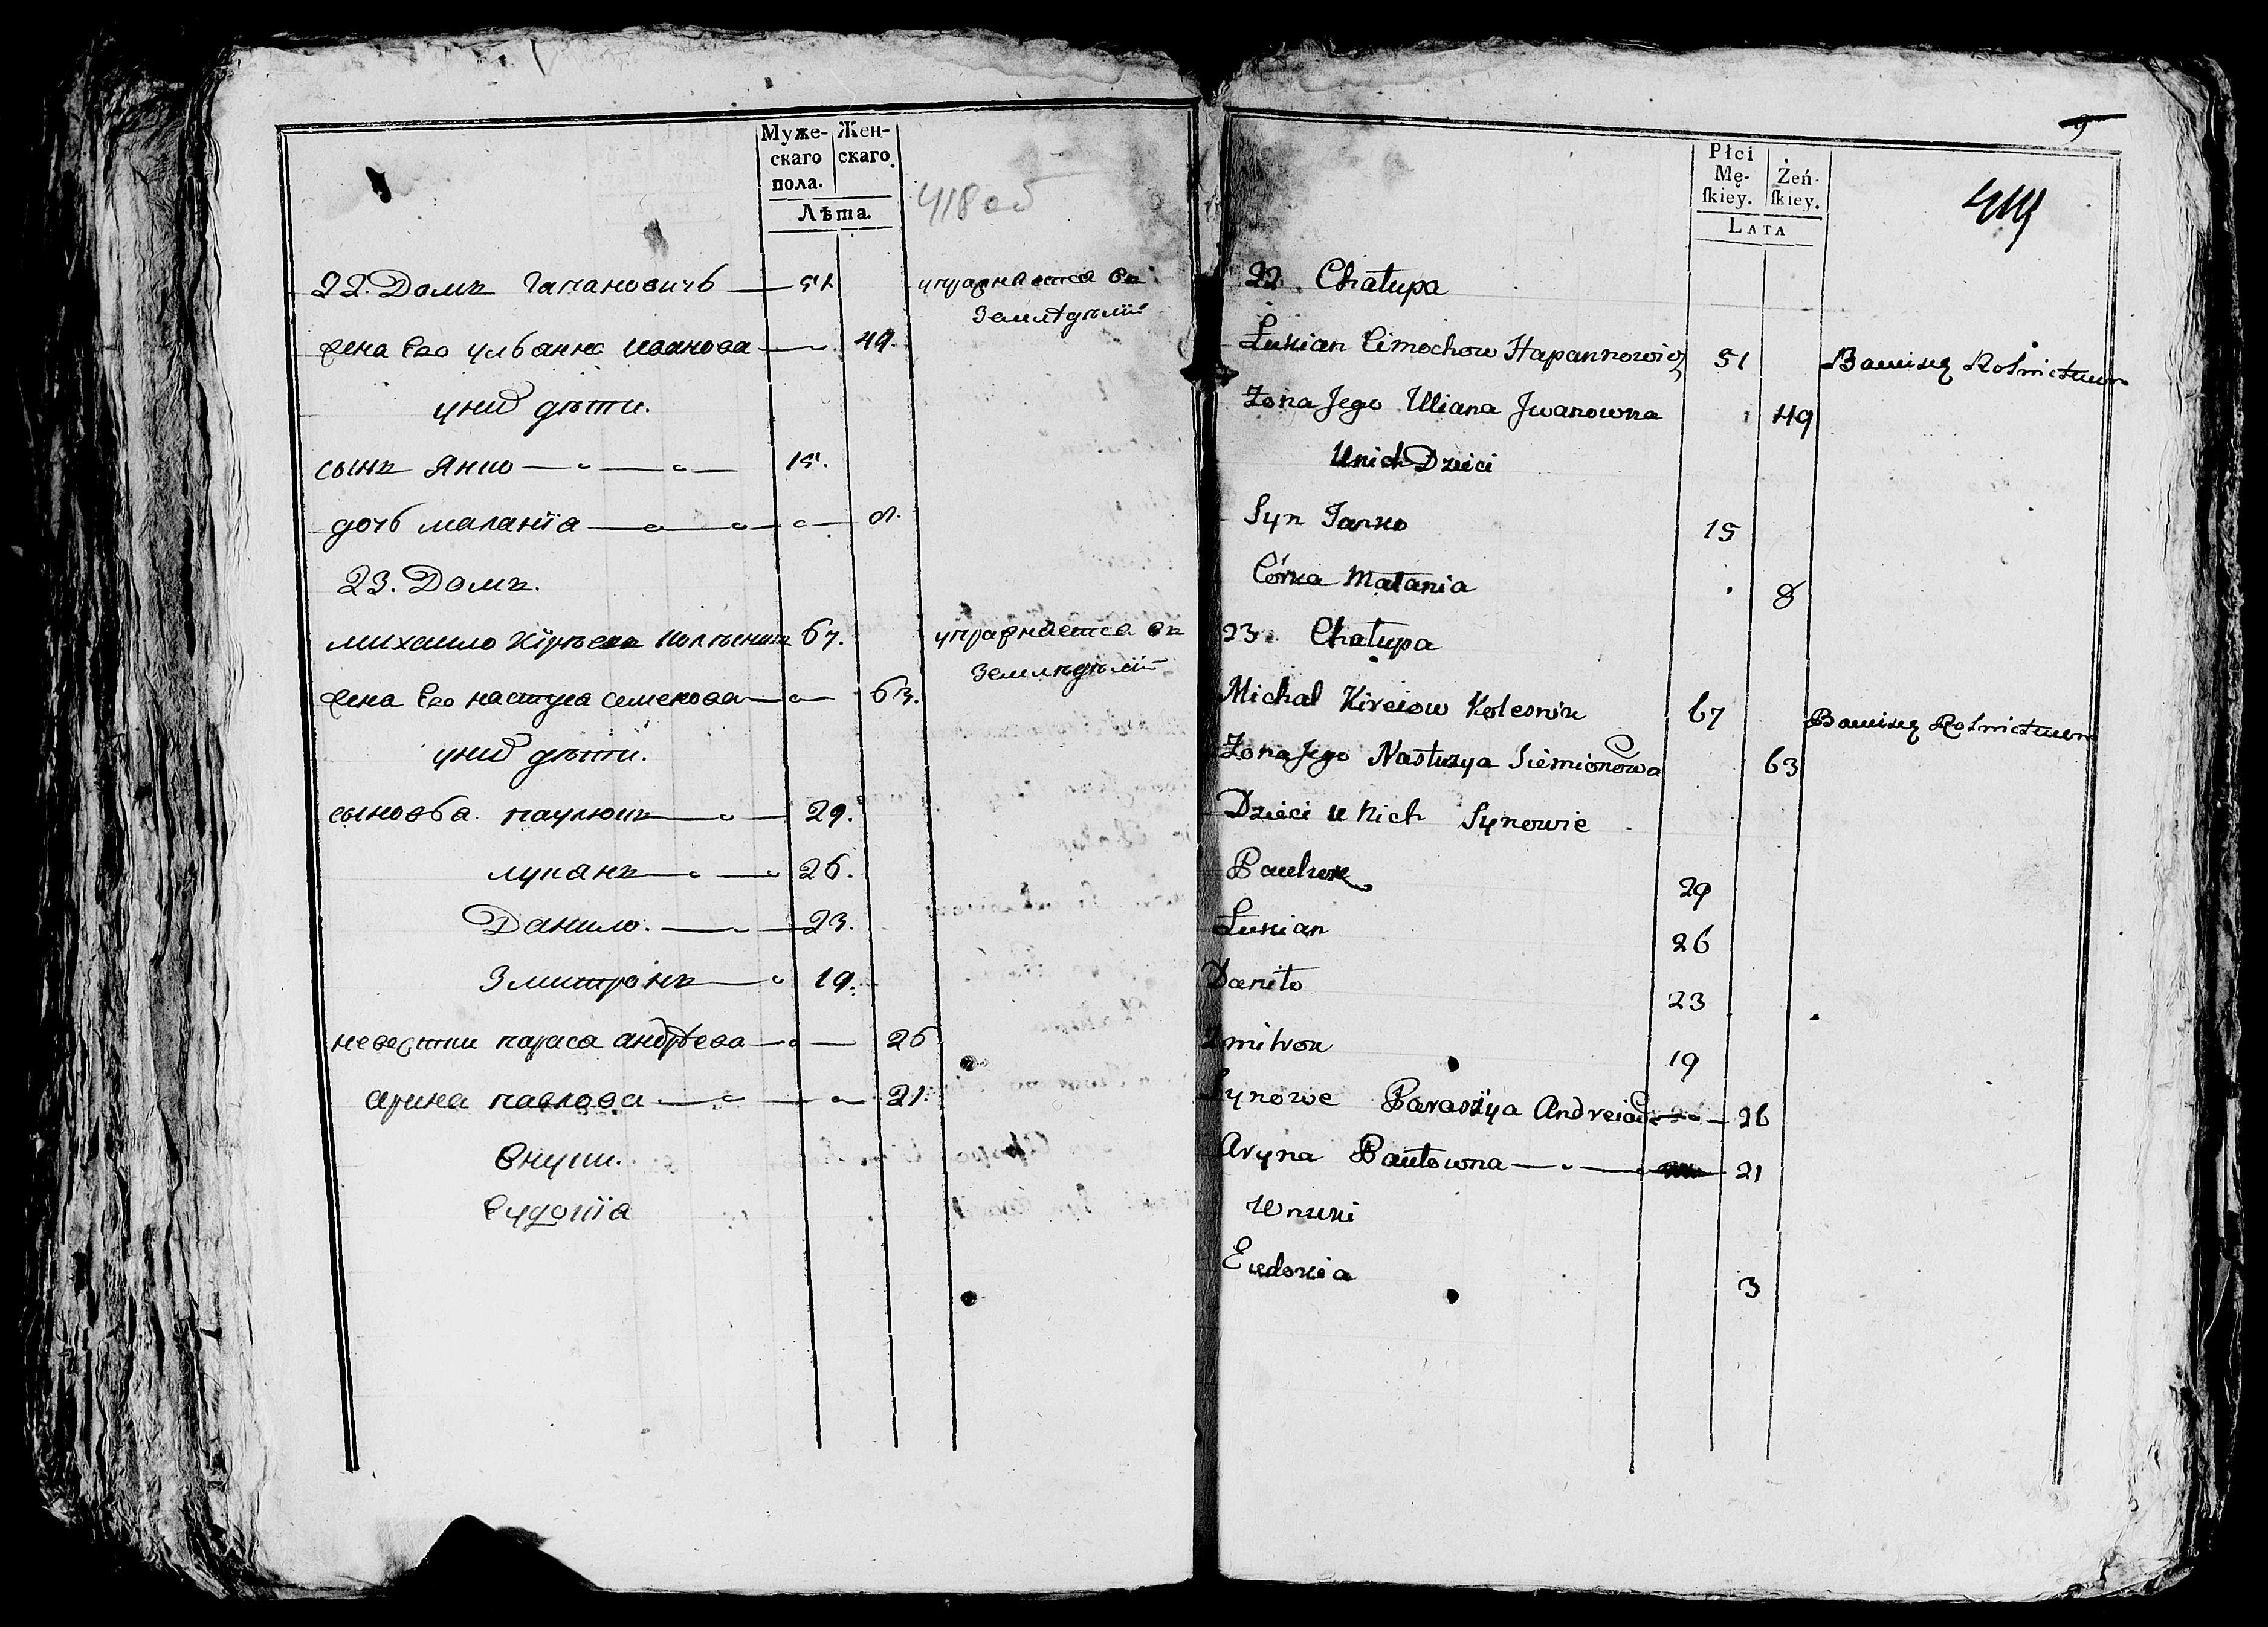 Муже-
скаго
пола.
Жен-
скаго.
Лѣта.
418 об
22. Домъ Гапановичь — 51
упражняется въ
земледѣлїи
жена Его ульянна Иванова — 49.
унихъ дѣти.
сынъ Янко — 15.
дочь маланїя — 8.
23. Домъ.
михаило Кірѣевъ Колѣсникъ 67.
упражняется въ
земледѣлїи
жена Его настуся семенова — 63.
унихъ дѣти.
сыновья. паулюкъ — 29.
лукянъ — 26.
Данило. — 23.
Змитрокъ — 19.
невѣстки параса андрѣева — 26
арина павлова — 21.
Внуки.
Еудокїя
9
419
Płci
Mę-
ſkiey.
Żeń-
ſkiey.
LATA
22. Chałupa
Łukian Cimochow Hapannowicz 51 Bawiącą Rolnictwem
Żona Jego Uliana Jwanowna 49
Unich Dzieci
Syn Janko 15
Córka Małania 8
23. Chałupa
Michał Kireiow Kolesnik 67 Bawiącą Rolnictwem
Żona Jego Nastuzya Siemionowa 63
Dzieci u Nich Synowie
Pauluk 29
Łukian 26
Daniło 23
Zmitrok 19
Synowe Paraszya Andreiow — 26
Aryna Pawłowna — 21
Wnuki
Eudokia 3